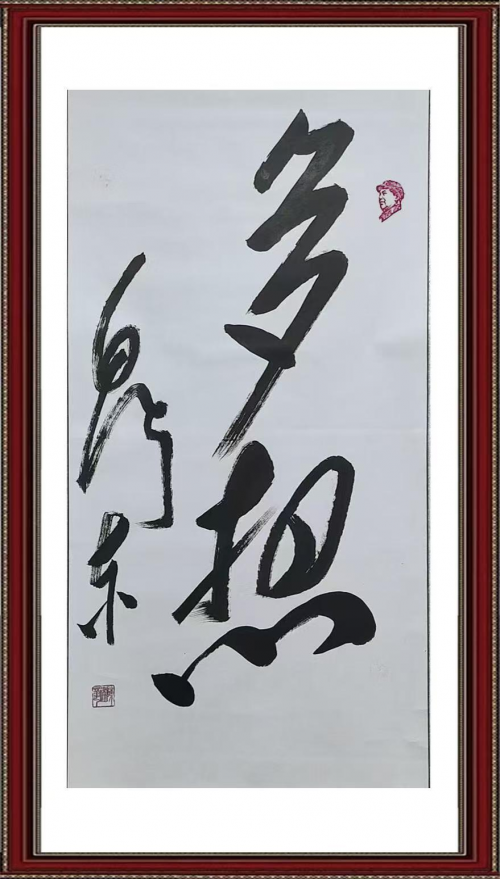 多想
泽东